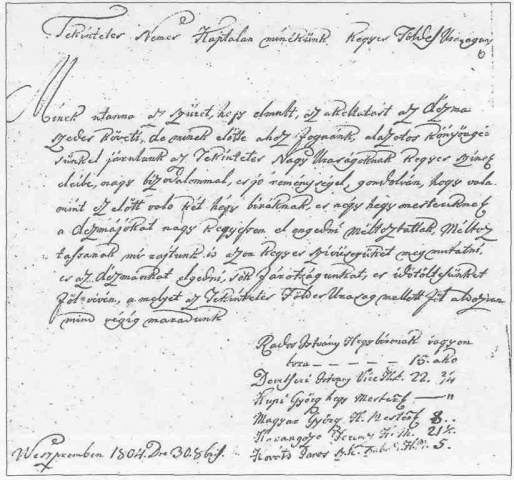 Tekintetes Nemes Káptalan minékünk Kegyes Földes Uraságunk
Minek utánna az szüret, hegy elmult, az
szedés követi, de minek előtte ahoz fognánk, alázatos könyörgé
sünkel járulunk az Tekintetes Nagy Uraságoknak Kegyes szinei
eleibe, nagy bizodalommal, es jó reménységel, gondolván, hogy vala
mint ez előtt való két hegy biráknak, es négy hegy mestereknek
a Dézmájokat nagy Kegyessen el engedni méltoztattak, Méltoz
tassanak mi rajtunk is azon Kegyes szivüségüket meg mutatni,
es az Dézmánkat elgedni, sok fáradtságunkat, es időtöltésünket
föl vévén, a melyet az Tekintetes Földes Uraság mellett
mind végig maradunk
Rados Istvany Hegybirónak vagyon
bora – – – – – 15. akó
Istvany Vice 22. 2/4
Kupi György hegy Mesternek — "
Magyar György H. Mester 8 ..
Harangozo Ferencz H. M. 21
Kováts János 5.
Weszpremben 1804. Dre 30.